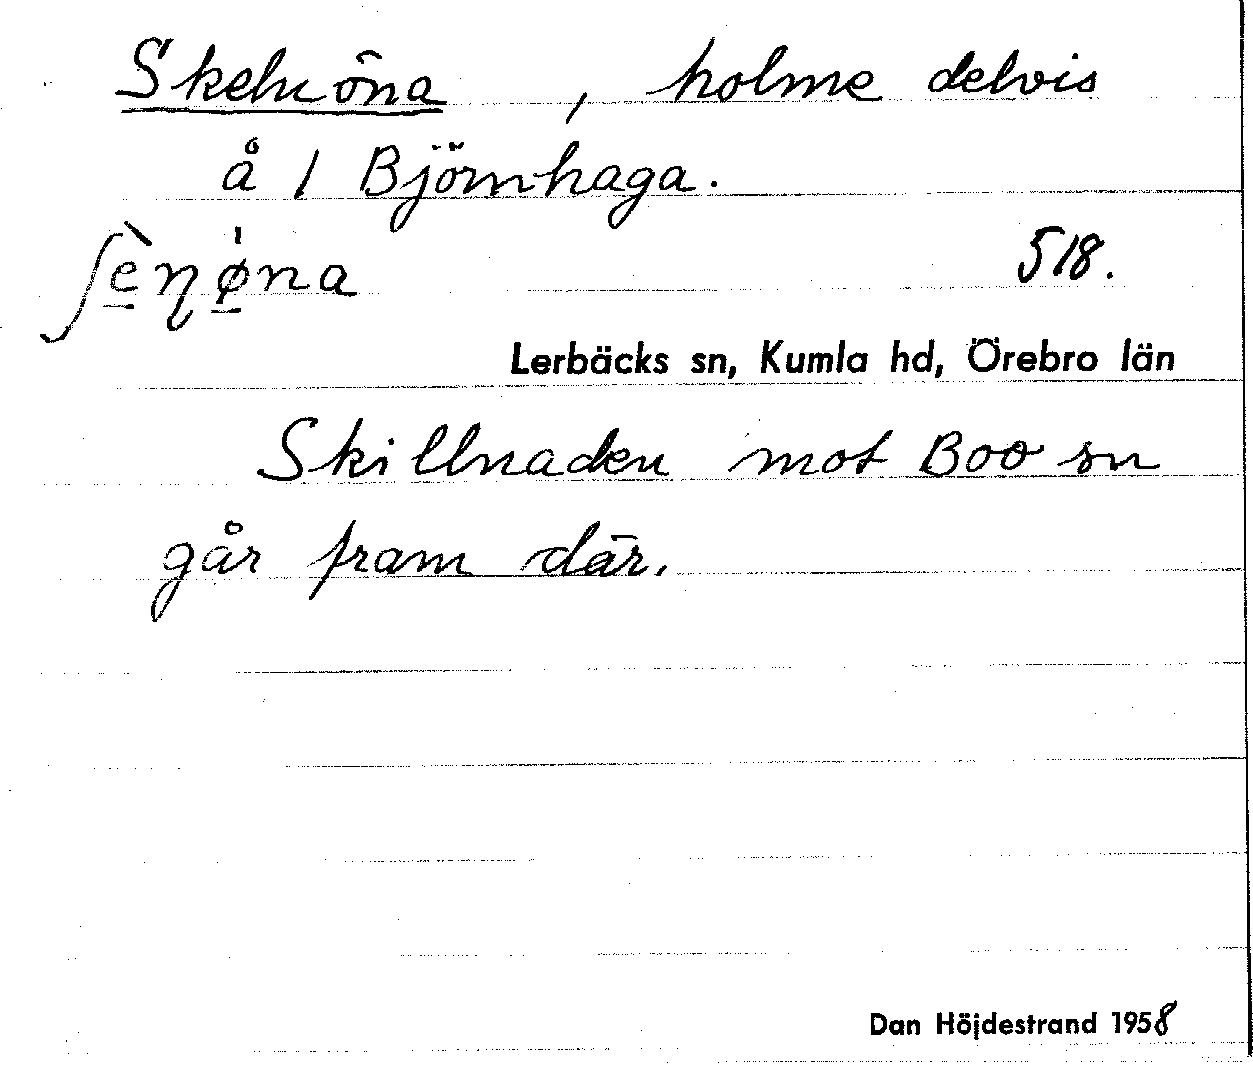 Skelnöna , holme delvis
å 1 Björnhaga.
518.
Lerbäcks sn, Kumla hd, Örebro län
Skillnaden mot Boo sn
går fram där.
Dan Höjdestrand 1958